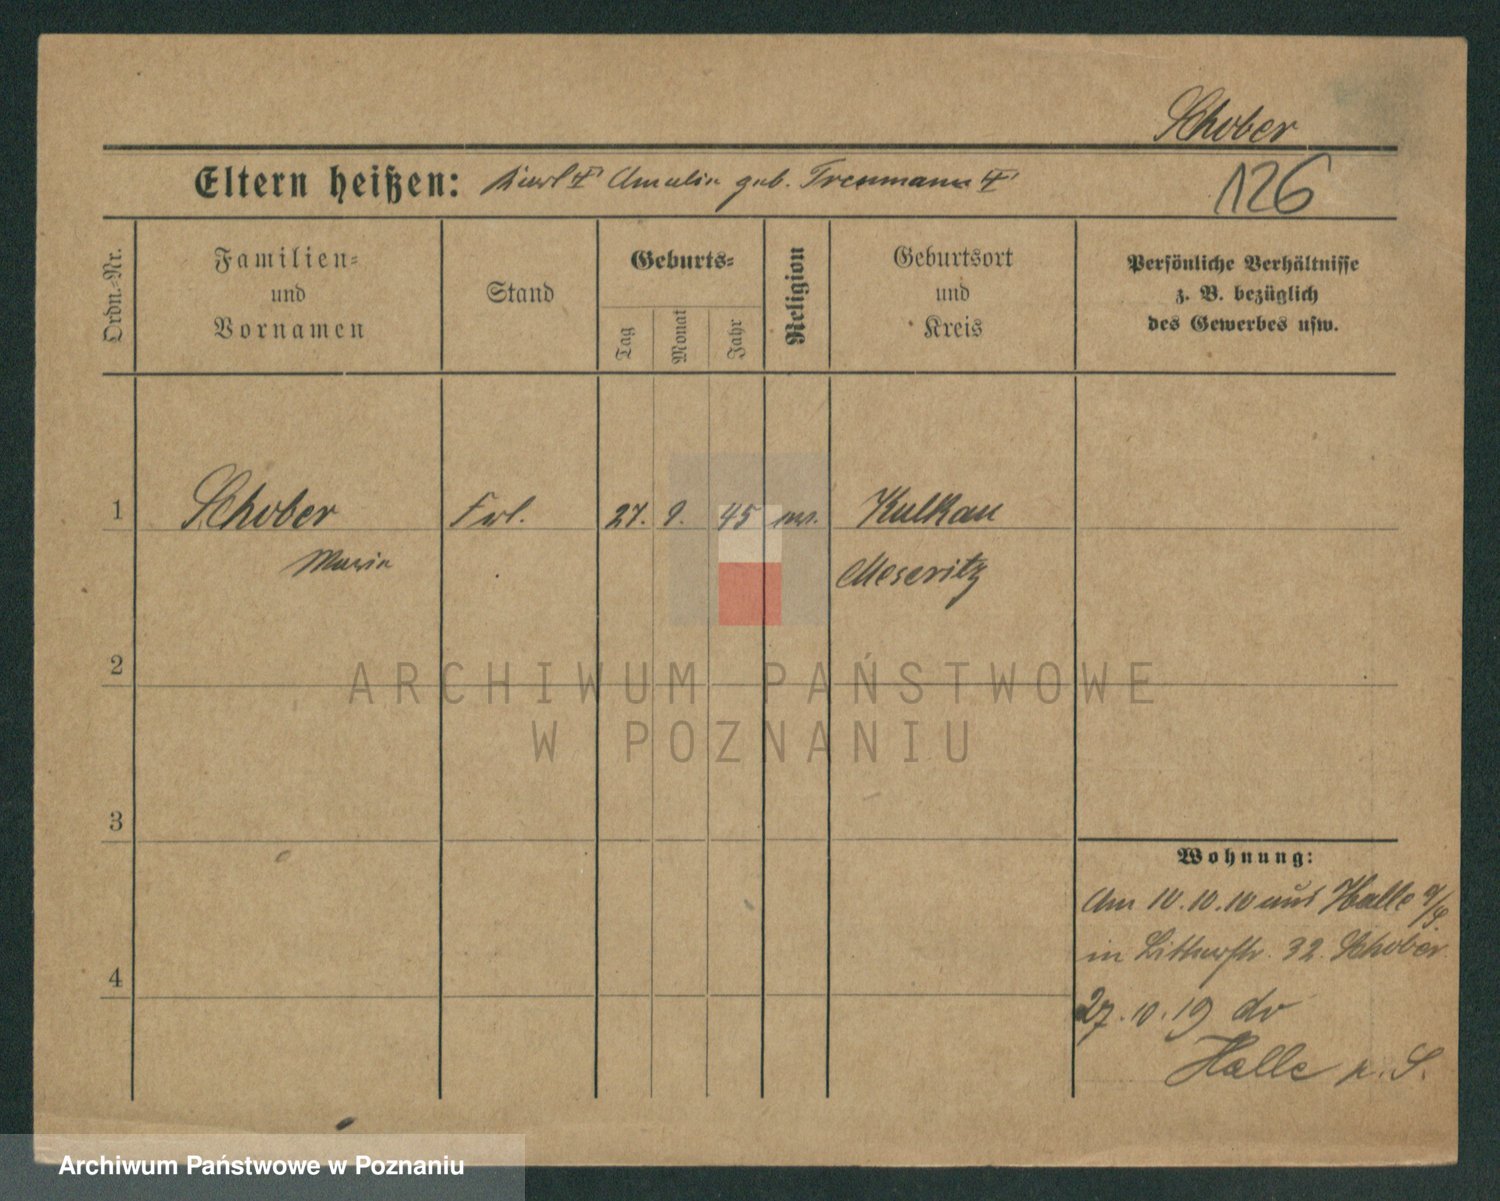 Schober
Eltern heißen: Karl † Amalie geb. Treumann †
126
Ordn.-Nr.
Familien-
und
Vornamen
Stand
Geburts-
Tag
Monat
Jahr
Religion
Geburtsort
und
Kreis
Persönliche Verhältnisse
z. B. bezüglich
des Gewerbes usw.
1 Schober Frl. 27. 9. 45 Kulkau
Marie Meseritz
2
ARCHIWUM PAŃSTWOWE
W POZNANIU
3
Wohnung:
Am 10.10.10 aus Halle a/S.
in 32. Schober
4
27.10.19
Halle a. S.
Archiwum Państwowe w Poznaniu